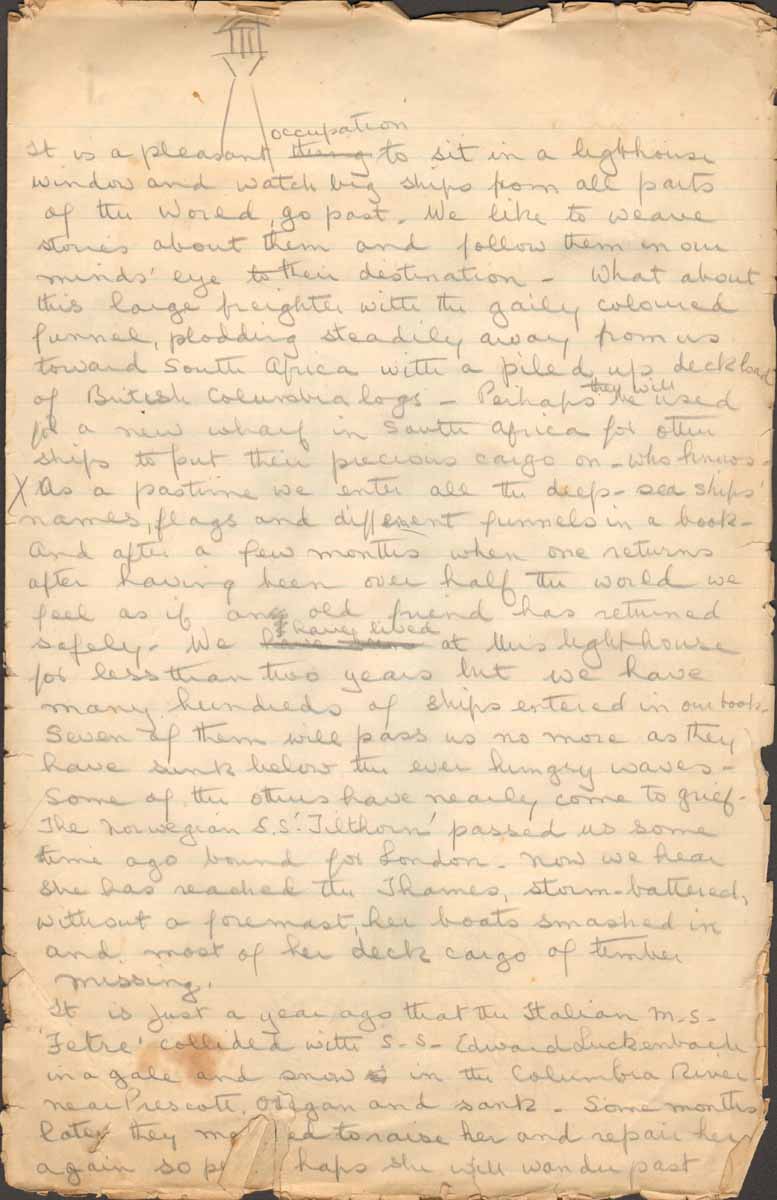 occupation
It is a pleasant thing to sit in a lighthouse
window and watch big ships from all parts
of the World, go past. We like to weave
stories about them and follow them in our
minds' eye to their destination - What about
this large freighter with the gaily coloured
funnel, plodding steadily away from us
toward South Africa with a piled up deckload
of British Columbia logs - Perhaps they will be used
for a new wharf in South Africa for other
ships to put their precious cargo on - who knows -
X As a pastime we enter all the deep-sea ships'
names, flags and different funnels in a book -
And after a few months when one returns
after having been over half the world we
feel as if an old friend has returned
safely. We have been have lived at this lighthouse
for less than two years but we have
many hundreds of ships entered in our book.
Seven of them will pass us no more as they
have sunk below the ever hungry waves -
Some of the others have nearly come to grief.
The Norwegian S.S. 'Tilthorn' passed us some
time ago bound for London. Now we hear
she has reached the Thames, storm-battered,
without a foremast, her boats smashed in
and most of her deck cargo of timber
missing.
It is just a year ago that the Italian M-S-
'Fetre' collided with S-S- Edward Luckenbach
in a gale and snow in the Columbia River
near Prescott, Oregan and sank - Some months
later they to raise her and repair her
again so haps she will wander past